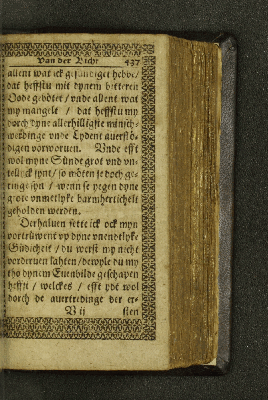 Van der Bicht 437
allent wat ick gesündiget hebbe/
dat heffstu mit dynem bitteren
Dode gebötet / vnde allent wat
my mangelt / dat heffstu my
dorch dyne allerhilligste minsch-
werdinge vnde Lydent
digen vorworuen. Vnde efft
wol myne Sünde grot vnd vn-
tellick synt / so möten se doch ge-
ringe syn / wenn se yegen dyne
grote vnmetlyke barmherticheit
geholden werden.
Derhaluen sette ick ock myn
vortrüwent vp dyne vnentlyke
Güdicheit / du werst my nicht
vorderuen lahten / dewyle du my
tho dynem Euenbilde geschapen
heffst / welckes / efft ydt wol
dorch de auertredinge der er-
V ij sten